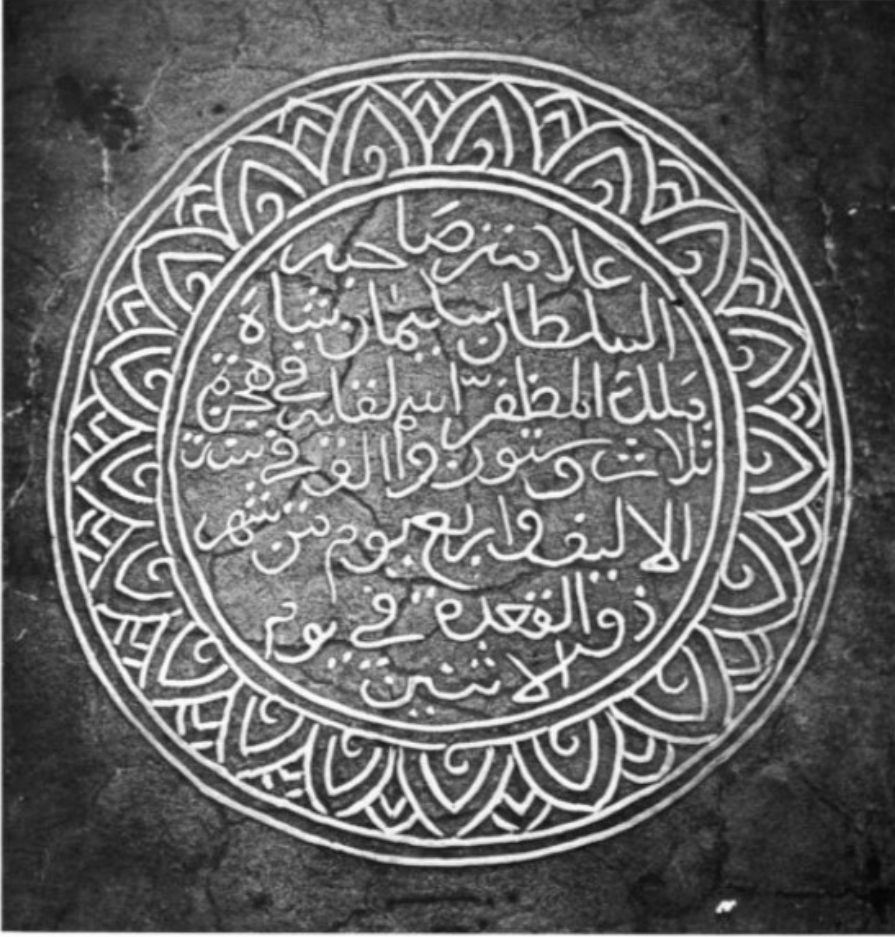 علامنر صاحبه
السلطان سليمان شاه
ملك المظفر اسم لقابه في هجرة
ثلاث وستون والف في سنت
الاليف واربع يوم من شهر
ذو القعده في يوم
الاثنين